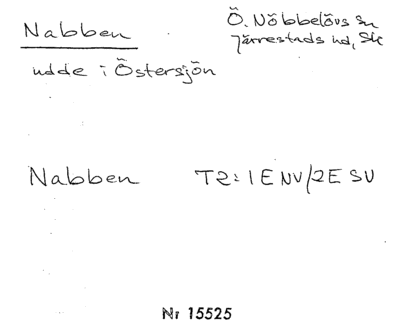 Nabben
Ö. Nöbbelövs sn
Järrestads hd, Sk
udde i Östersjön
Nabben T2:1E NV/2E SV
Nr 15525